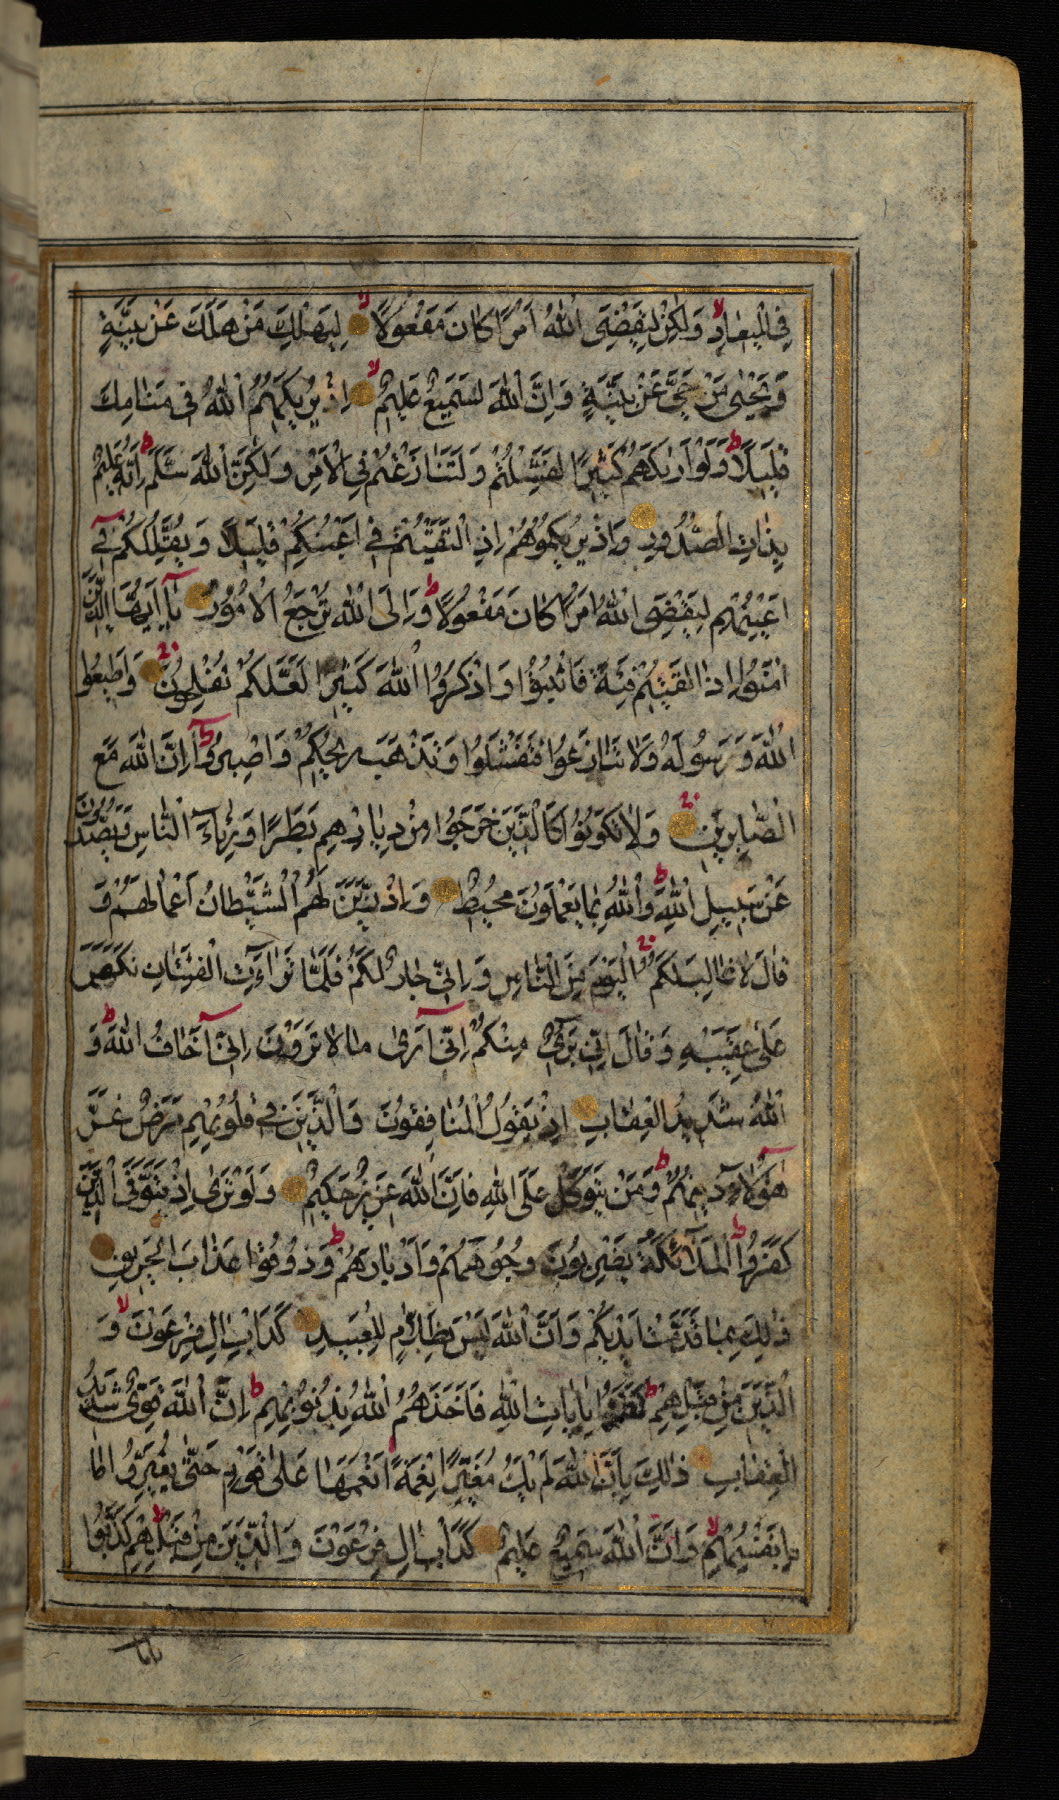 فِي الْمِيعَادِ وَلٰكِنْ لِيَقْضِيَ اللّٰهُ اَمْرًا كَانَ مَفْعُولًا لِيَهْلِكَ مَنْ هَلَكَ عَنْ بَيِّنَةٍ
وَيَحْيٰى مَنْ حَيَّ عَنْ بَيِّنَةٍ وَاِنَّ اللّٰهَ لَسَمِيعٌ عَلِيمٌ اِذْ يُرِيكَهُمُ اللّٰهُ فِي مَنَامِكَ
قَلِيلًا وَلَوْ اَرٰيكَهُمْ كَثِيرًا لَفَشِلْتُمْ وَلَتَنَازَعْتُمْ فِي الْاَمْرِ وَلٰكِنَّ اللّٰهَ سَلَّمَ اِنَّهُ عَلِيمٌ
بِذَاتِ الصُّدُورِ وَاِذْ يُرِيكُمُوهُمْ اِذِ الْتَقَيْتُمْ فِي اَعْيُنِكُمْ قَلِيلًا وَيُقَلِّلُكُمْ فِي
اَعْيُنِهِمْ لِيَقْضِيَ اللّٰهُ اَمْرًا كَانَ مَفْعُولًا وَاِلَى اللّٰهِ تُرْجَعُ الْاُمُورُ يَا اَيُّهَا الَّذِينَ
اٰمَنُوا اِذَا لَقِيتُمْ فِئَةً فَاثْبُتُوا وَاذْكُرُوا اللّٰهَ كَثِيرًا لَعَلَّكُمْ تُفْلِحُونَ وَاَطِيعُوا
اللّٰهَ وَرَسُولَهُ وَلَا تَنَازَعُوا فَتَفْشَلُوا وَتَذْهَبَ رِيحُكُمْ وَاصْبِرُوا اِنَّ اللّٰهَ مَعَ
الصَّابِرِينَ وَلَا تَكُونُوا كَالَّذِينَ خَرَجُوا مِنْ دِيَارِهِمْ بَطَرًا وَرِئَاءَ النَّاسِ وَيَصُدُّونَ
عَنْ سَبِيلِ اللّٰهِ وَاللّٰهُ بِمَا يَعْمَلُونَ مُحِيطٌ وَاِذْ زَيَّنَ لَهُمُ الشَّيْطَانُ اَعْمَالَهُمْ وَ
قَالَ لَا غَالِبَ لَكُمُ الْيَوْمَ مِنَ النَّاسِ وَاِنِّي جَارٌ لَكُمْ فَلَمَّا تَرَاءَتِ الْفِئَتَانِ نَكَصَ
عَلٰى عَقِبَيْهِ وَقَالَ اِنِّي بَرِيءٌ مِنْكُمْ اِنِّي اَرٰى مَا لَا تَرَوْنَ اِنِّي اَخَافُ اللّٰهَ وَ
اللّٰهُ شَدِيدُ الْعِقَابِ اِذْ يَقُولُ الْمُنَافِقُونَ وَالَّذِينَ فِي قُلُوبِهِمْ مَرَضٌ غَرَّ
هٰؤُلَاءِ دِينُهُمْ وَمَنْ يَتَوَكَّلْ عَلَى اللّٰهِ فَاِنَّ اللّٰهَ عَزِيزٌ حَكِيمٌ وَلَوْ تَرٰى اِذْ يَتَوَفَّى الَّذِينَ
كَفَرُوا الْمَلَائِكَةُ يَضْرِبُونَ وُجُوهَهُمْ وَاَدْبَارَهُمْ وَذُوقُوا عَذَابَ الْحَرِيقِ
ذٰلِكَ بِمَا قَدَّمَتْ اَيْدِيكُمْ وَاَنَّ اللّٰهَ لَيْسَ بِظَلَّامٍ لِلْعَبِيدِ كَدَاْبِ اٰلِ فِرْعَوْنَ وَ
الَّذِينَ مِنْ قَبْلِهِمْ كَفَرُوا بِاٰيَاتِ اللّٰهِ فَاَخَذَهُمُ اللّٰهُ بِذُنُوبِهِمْ اِنَّ اللّٰهَ قَوِيٌّ شَدِيدُ
الْعِقَابِ ذٰلِكَ بِاَنَّ اللّٰهَ لَمْ يَكُ مُغَيِّرًا نِعْمَةً اَنْعَمَهَا عَلٰى قَوْمٍ حَتّٰى يُغَيِّرُوا مَا
بِاَنْفُسِهِمْ وَاَنَّ اللّٰهَ سَمِيعٌ عَلِيمٌ كَدَاْبِ اٰلِ فِرْعَوْنَ وَالَّذِينَ مِنْ قَبْلِهِمْ كَذَّبُوا